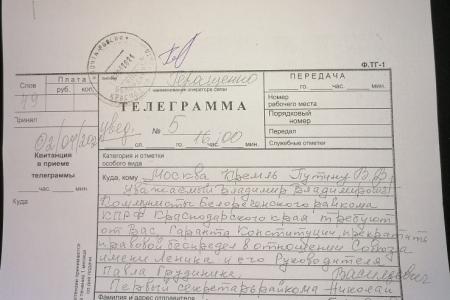 Ф.ТГ-1
Слов Плата
руб. коп.
49
Принял
02/07/202
Квитанция
в приеме
телеграммы
час. мин.
Куда
ПОЧТА РОССИИ
Геращенко
наименование оператора связи
ТЕЛЕГРАММА
увед. № 5
16:00
го час. мин.
ПЕРЕДАЧА
го час. мин.
Номер
рабочего места
Порядковый
номер
Передал
Служебные отметки
Категория и отметки
особого вида
Куда, кому Москва Кремль Путину В.В.
Уважаемый Владимир Владимирович
Коммунисты Белореченского райкома
КПРФ Краснодарского края требуют
от Вас, Гаранта Конституции, прекратить
правовой беспредел в отношении Совхоза
имени Ленина и его Руководителя
Павла Грудинина.
Васильевич
Первый секретарь райкома Николай
Фамилия и адрес отправителя